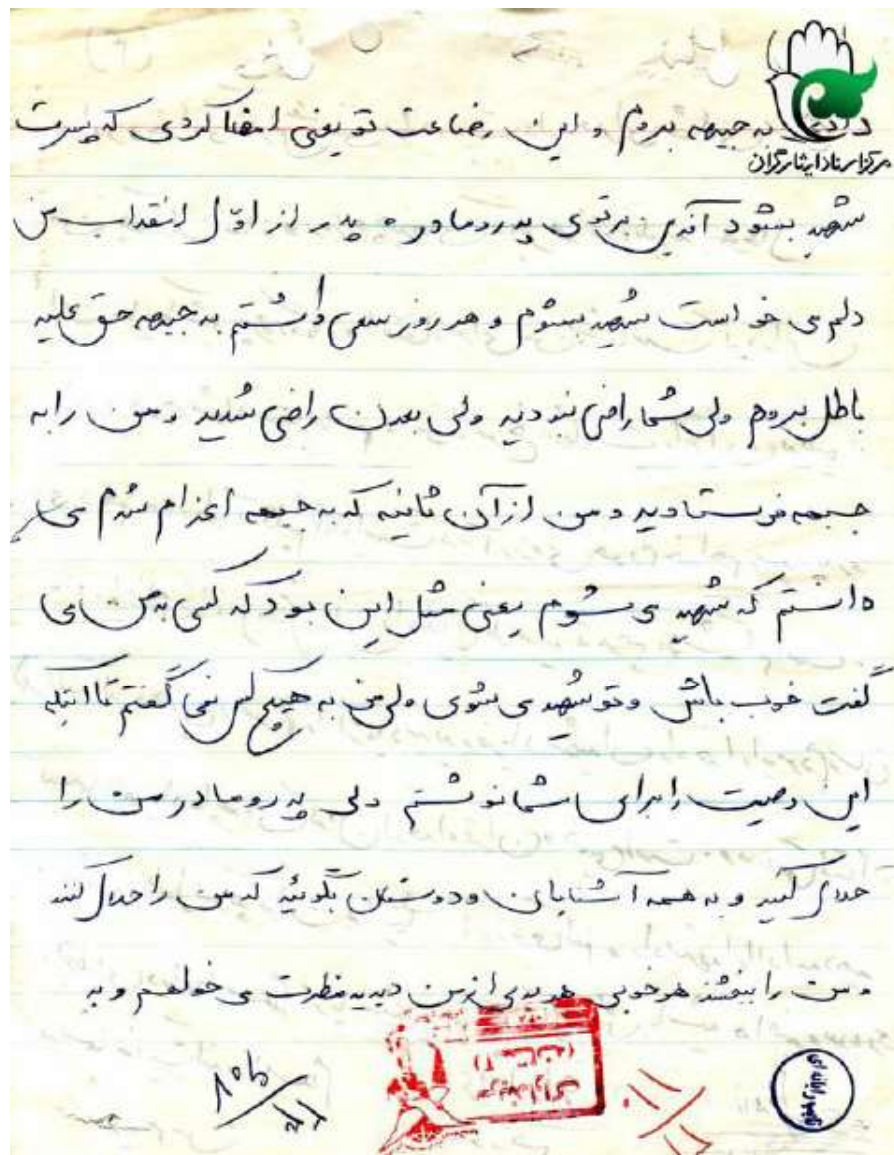 مرکز اسناد ایثارگران
به جبهه بروم و این رضاعت تو یعنی امضا کردی که پسرت
شهید بشود آفرین بر توی پدر و مادر ه پدر از اوّل انقداب من
دلم می خواست شهید بشوم و هر روز سعی داشتم به جبهه حق علیه
باطل بروم ولی شما راضی نبودید ولی بعدن راضی شدید و من را به
جبهه فرستادید و من از آن ثانیه که به جبهه اعزام شدم می
دانستم که شهید می شوم یعنی مثل این بود که کسی به من می
گفت خوب باش و تو شهید می شوی ولی من به هیچ کس نمی گفتم تا اینکه
این وصیت را برای شما نوشتم ولی پدر و مادر من را
حلال کنید و به همه آشنایان و دوستان بگوئید که من را حلال کنند
و من را ببخشند هر خوبی هر بدی از من دیدید معظرت می خواهم و به